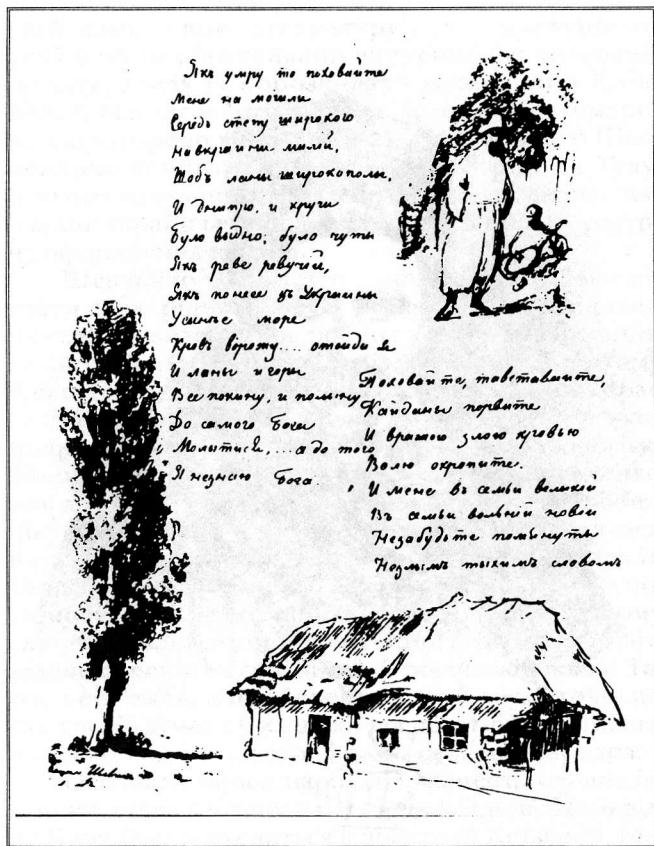 Якъ умру то поховайте
Мене на могили
Середь степу широкого
На вкраини милий,
Щобъ ланы широкополы,
И Днипро, и кручи
Було выдно, було чуты
Якъ реве ревучий,
Якъ понесе зъ Украины
У синее море
Кровъ ворожу.... отойди я
И ланы и горы
Все покину, и полыну
До самого Бога
Молитися, ... а до того
Я незнаю Бога.
Поховайте, та вставайте,
Кайданы порвите
И вражою злою кровью
Волю окропите.
И мене въ семьи великой
Въ семьи вольний новой
Незабудьте помьянуты
Незлымъ тыхимъ словомъ